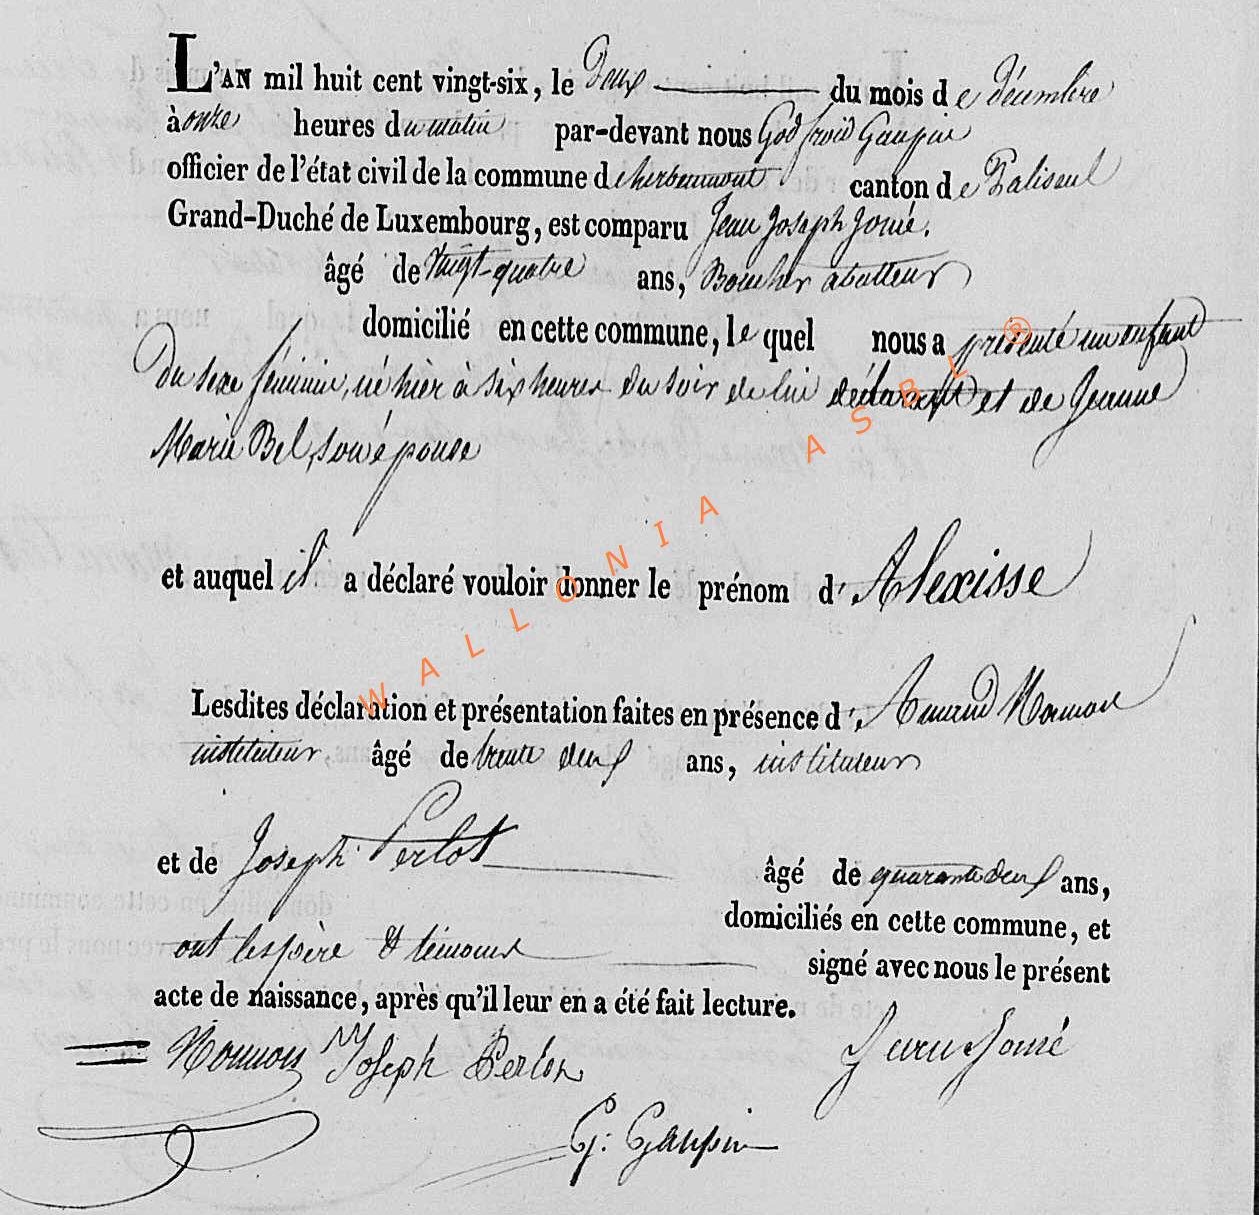 L'AN mil huit cent vingt-six, le Deux du mois de décembre
à onze heures du matin par-devant nous Godfroid Gaupin
officier de l'état civil de la commune d'herbeumont canton de Paliseul
Grand-Duché de Luxembourg, est comparu Jean Joseph Joué.
âgé de Vingt-quatre ans, Boucher abatteur
domicilié en cette commune, lequel nous a présenté un enfant
Du sexe féminin, né hier à six heures du soir de lui déclarant et de Jeanne
Marie Bel, son épouse
et auquel il a déclaré vouloir donner le prénom d'Alexisse
Lesdites déclaration et présentation faites en présence d'Amand
instituteur, âgé de trente deux ans, instituteur
et de Joseph Perlot âgé de quarante deux ans,
domiciliés en cette commune, et
ont les père & témoins signé avec nous le présent
acte de naissance, après qu'il leur en a été fait lecture.
Joseph Perlot Jean Joué
G: Gaupin
WALLONIA ASBL ®